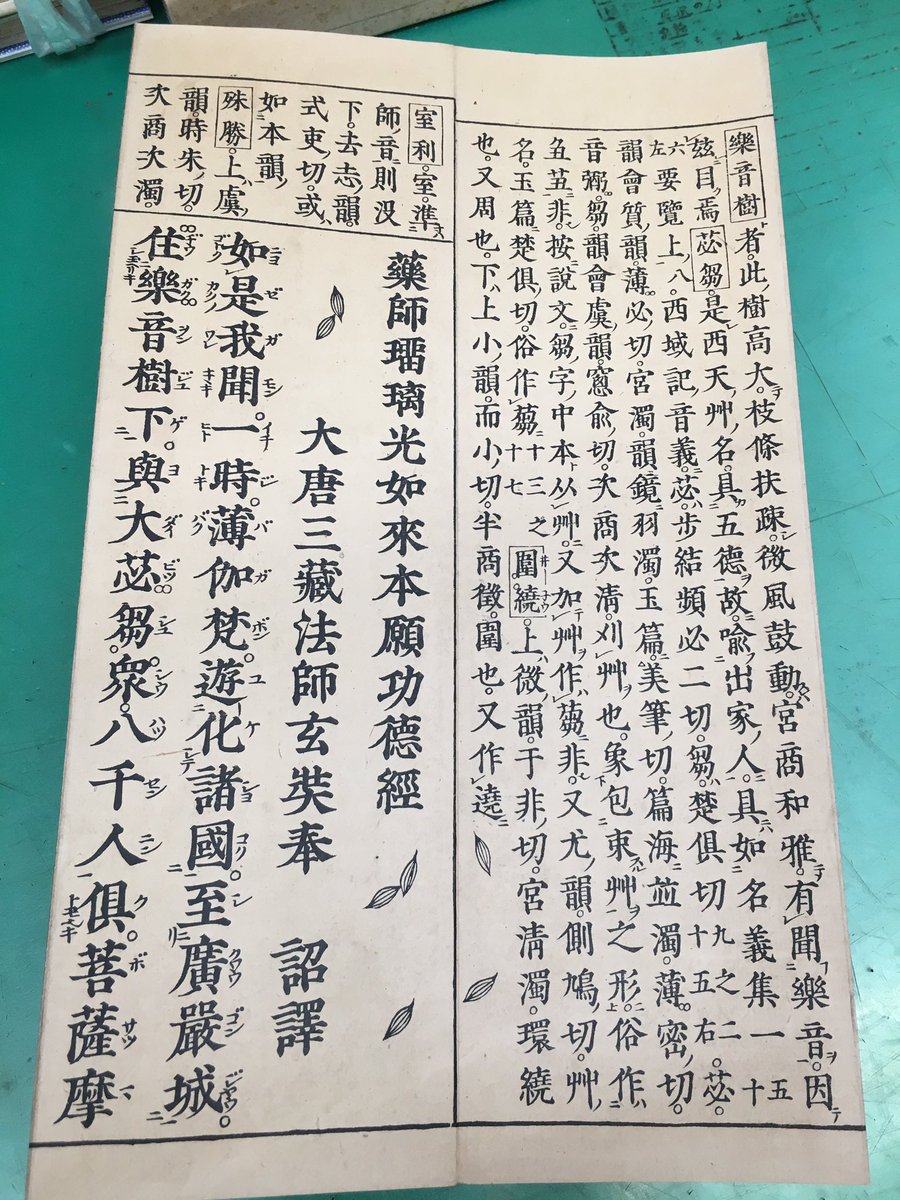 樂音樹者。此樹高大。枝條扶疎。微風鼓動。宮商和雅。有聞樂音。因
玆目焉 苾芻。是西天艸名。具五德故。喩出家人。具如名義集一 五十
六左 要覽上八。西域記音義。苾。步結頻必二切。芻。楚俱切 十九之二十五右。苾。
韻會質韻。薄必切。宮濁。韻鏡羽濁。玉篇。美筆切。篇海竝濁。薄密切。
音弼。芻。韻會虞韻。窻兪切。次商次淸。刈艸也。象包束艸之形。俗作
芻非。按說文。芻字中本从艸。又加艸作蒭非。又尤韻側鳩切。艸
名。玉篇楚俱切。俗作蒭 十三之十七 圍繞。上微韻。于非切。宮淸濁。環繞
也。又周也。下上小韻。而小切。半商徵。圍也。又作遶
室利。室。準
師音則沒
下。去志韻。
式吏切。或
如本韻
殊勝。上虞
韻。時朱切。
次商次濁。
藥師瑠璃光如來本願功德經
大唐三藏法師玄奘奉 詔譯
如是我聞。一時。薄伽梵。遊化諸國。至廣嚴城
住樂音樹下。與大苾芻衆。八千人俱。菩薩摩